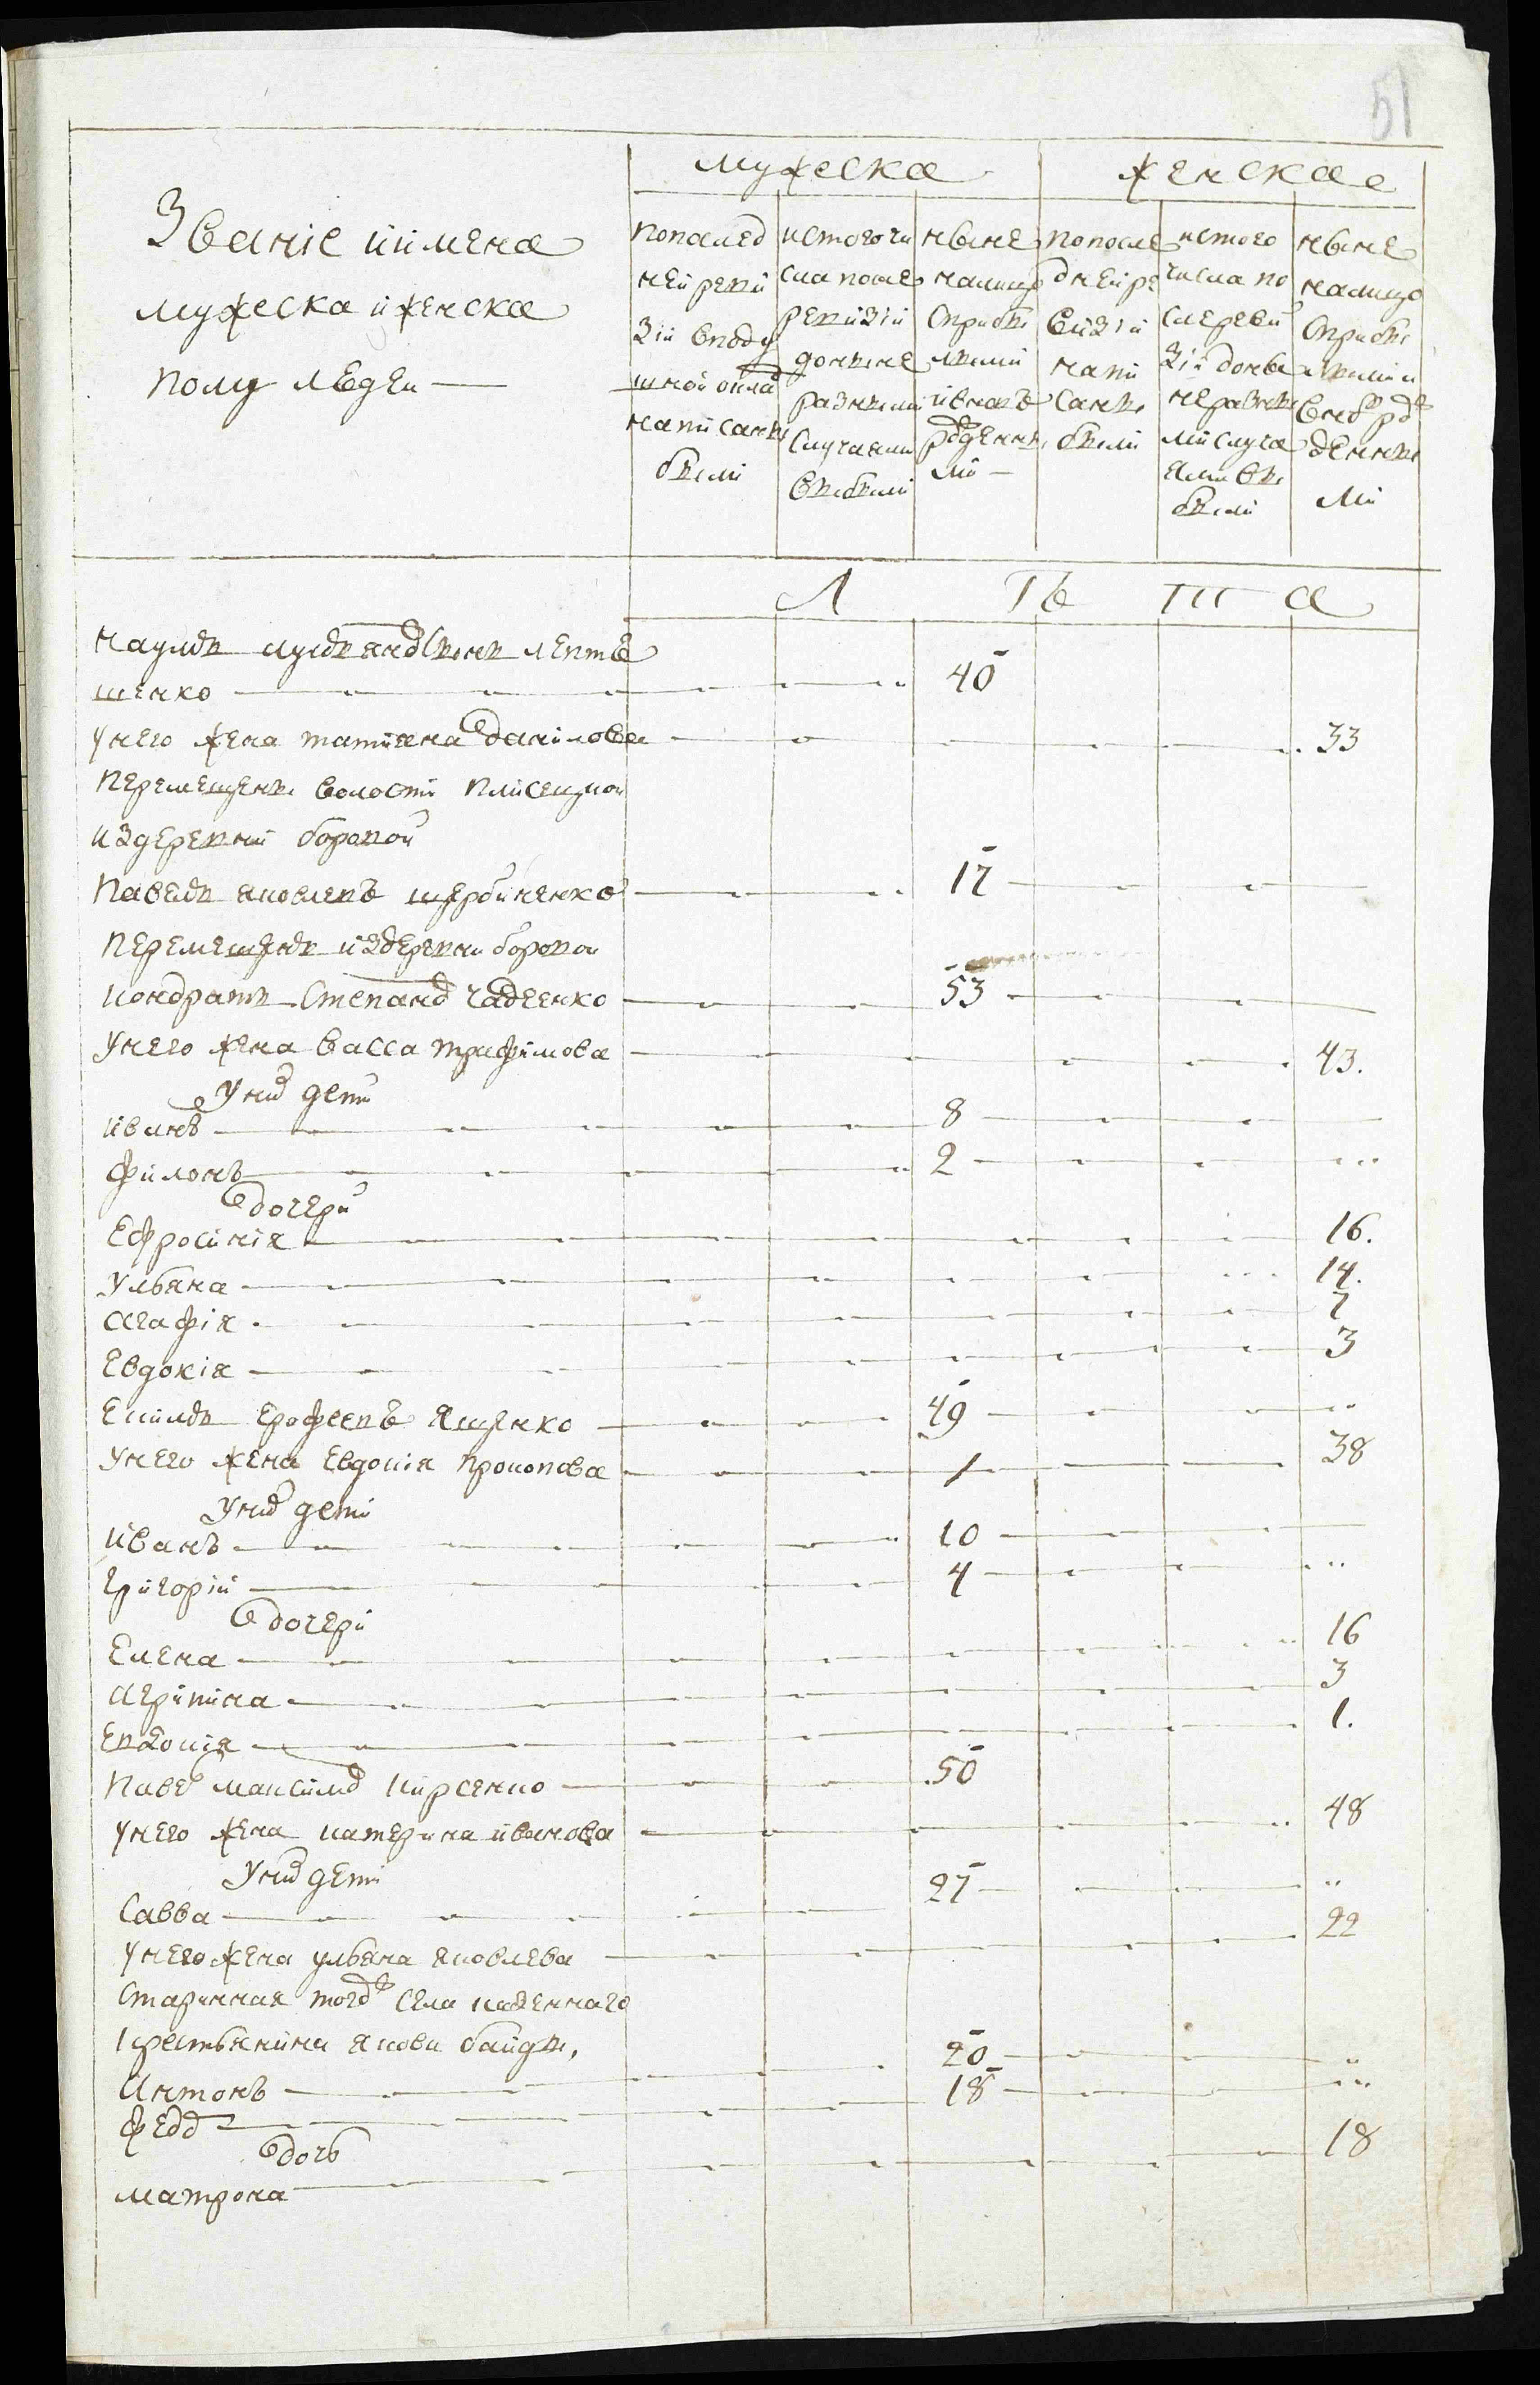 51
мужеска
женскае
Званіе и имена
мужеска и женска
полу людеи
попослед
ней реви
зіи вподу
шной окла
написаны
были
истогочи
сла после
ревизіи
доныне
разными
случаями
выбыли
ныне
налицо
сприбы
лыми
ивновь
рожденны
ми
попосле
дней ре
визіи
напи
саны
были
истого
числа по
слереви
зіи доны
неразны
ми случа
ями вы
были
ныне
налицо
сприбы
лыми и
вновь рож
денны
ми
Л Ѣ Т а
Наумъ лукьяновъ сынъ
шенко 40
унего жена татияна данилова 33
перемещены волости плисецкои
издеревни боровой
Павелъ яковлевъ щербиненко 17
перемещенъ издеревни боровои
Кондратъ степановъ 53
Унего жена васса трафимова 43.
Уних дети
иванъ 8
филонъ 2
дочери
Ефросинія 16.
Ульяна 14.
агафія 7
Евдокія 3
Екимъ Ерофеевъ Ященко 49
Унего жена Евдокія прокопова 38
Уних дети
иванъ 10
Григорій 4
дочери
Елена 16
агрипина 3
Евдокия 1.
Павелъ максимовъ кирсенко 50
унего жена катерина иванова 48
Уних дети
Савва 27
унего жена ульяна яковлева 22
старинная тогожъ села казеннаго
крестьянина якова байды,
Антонъ 20
Федоръ 18
дочь
матрона 18